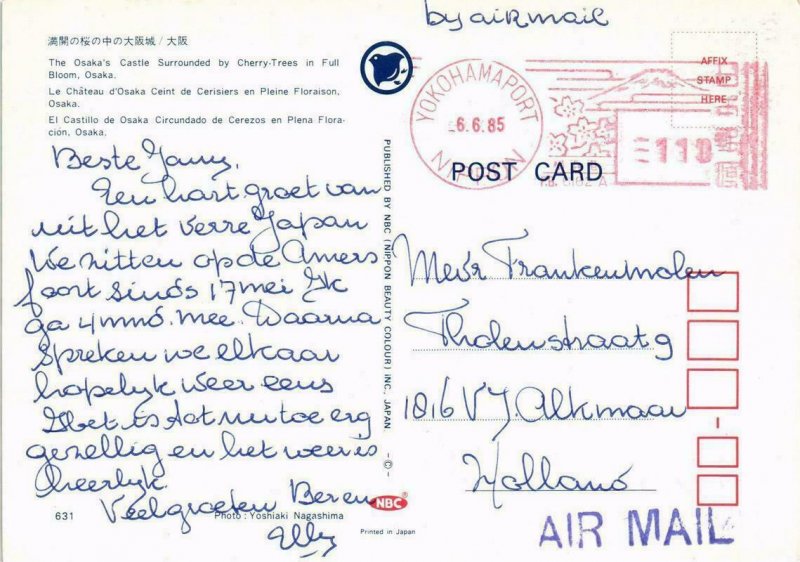 by airmail
満開の桜の中の大阪城 / 大阪
The Osaka's Castle Surrounded by Cherry-Trees in Full
Bloom, Osaka.
Le Château d'Osaka Ceint de Cerisiers en Pleine Floraison,
Osaka.
El Castillo de Osaka Circundado de Cerezos en Plena Flora-
ción, Osaka.
Beste
Een hart groet van
uit het verre Japan
We zitten op de Amers
foort sinds 17 mei Ik
ga 4 mnd. mee. Daarna
spreken we elkaar
hopelijk weer eens
Het is tot nu toe erg
gezellig en het weer is
heerlijk
Veel groeten Beren
Elly
631
Photo: Yoshiaki Nagashima
PUBLISHED BY NBC (NIPPON BEAUTY COLOUR) INC, JAPAN. -©-
NBC
Printed in Japan
YOKOHAMAPORT
6.6.85
NIPPON
AFFIX
STAMP
HERE
110
POST CARD
Mevr Frankenmolen
Tholenstraat 9
1816 VJ Alkmaar
Holland
AIR MAIL